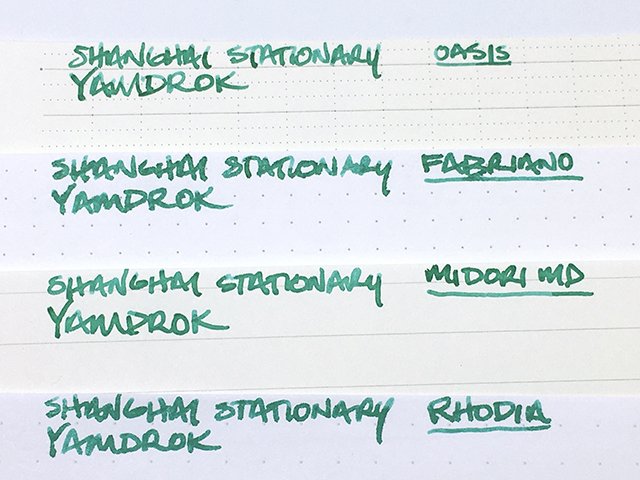 SHANGHAI STATIONARY OASIS
YAMDROK
SHANGHAI STATIONARY FABRIANO
YAMDROK
SHANGHAI STATIONARY MIDORI MD
YAMDROK
SHANGHAI STATIONARY RHODIA
YAMDROK